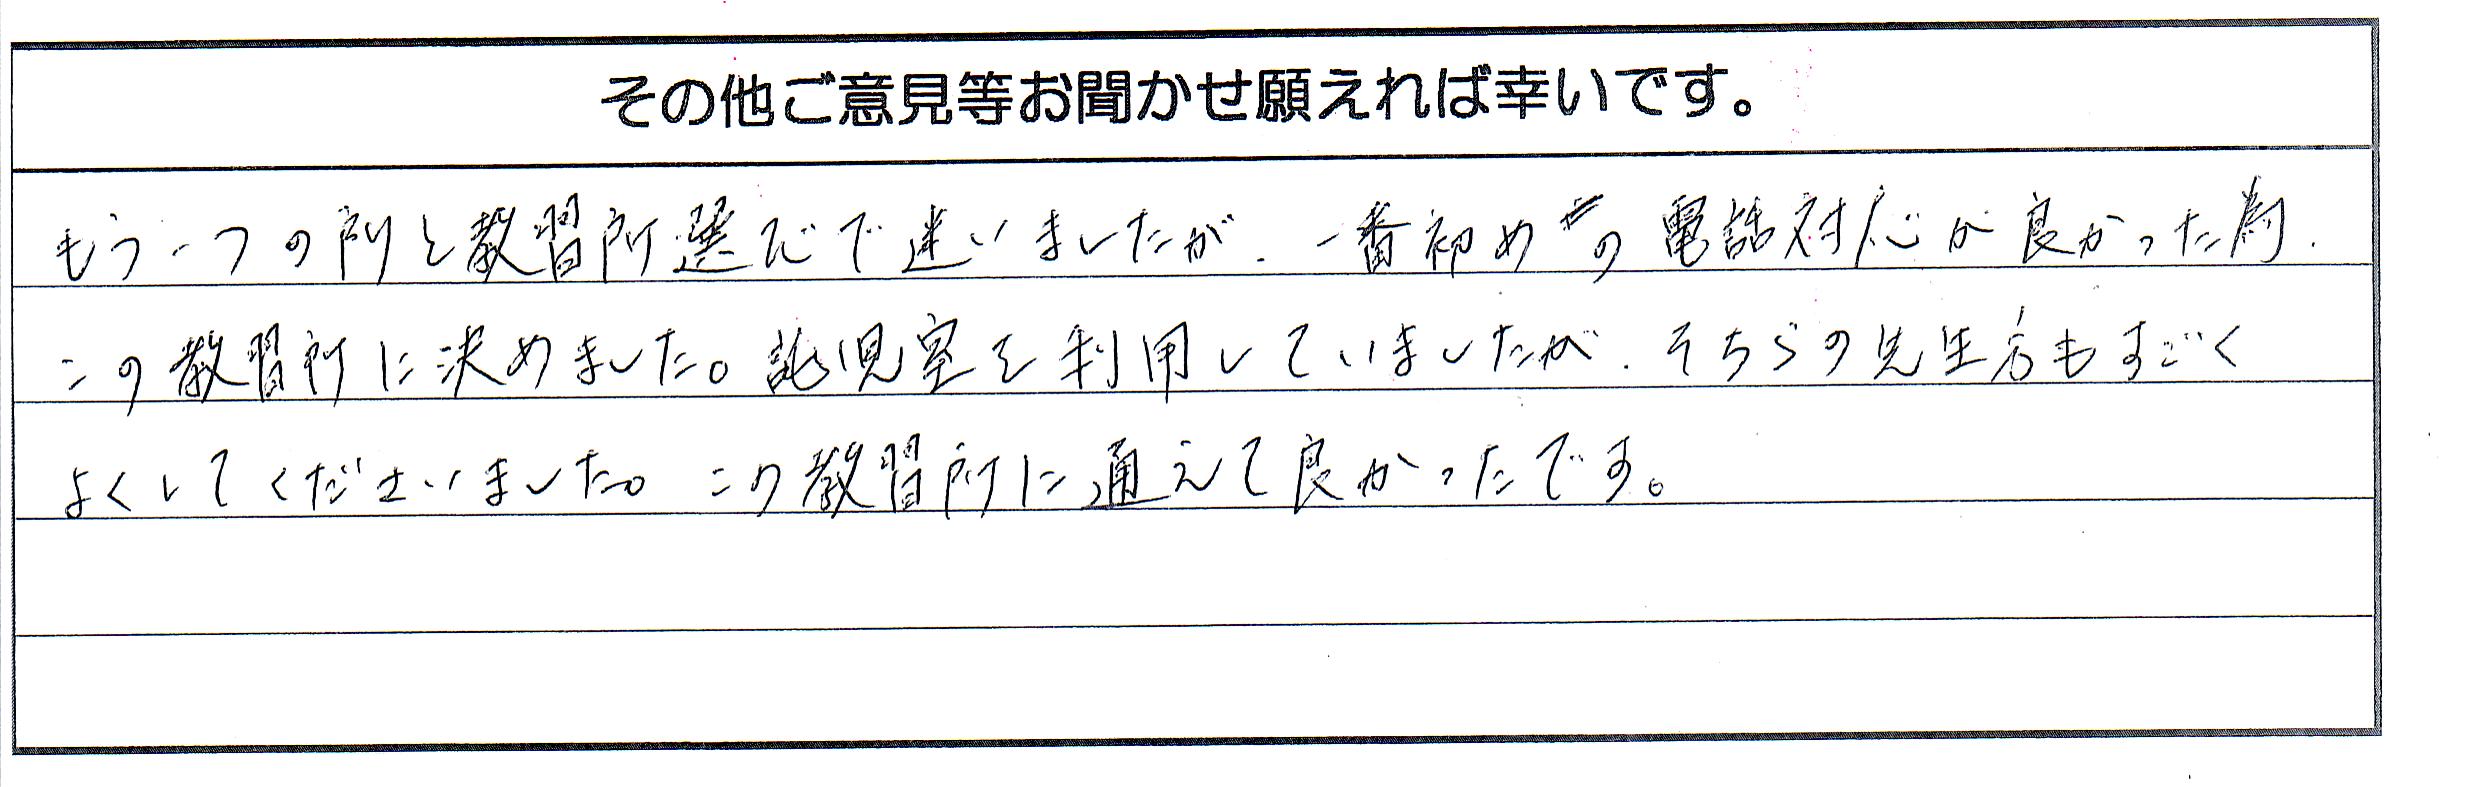 その他ご意見等お聞かせ願えれば幸いです。
もう一つの所と教習所選びで迷いましたが、一番初めの電話対応が良かった為、
この教習所に決めました。託児室を利用していましたが、そちらの先生方もすごく
よくしてくださいました。この教習所に通えて良かったです。